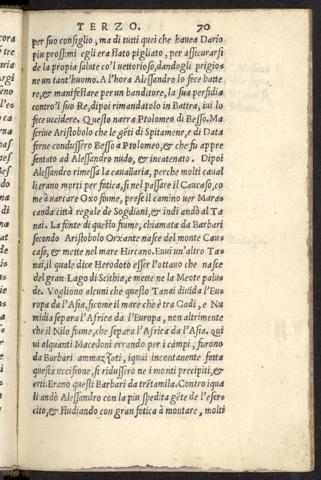 TERZO. 70
per suo consiglio, ma di tutti quei che hauea Dario
piu prossimi egli era stato pigliato, per assicurar si
de la propia salute co'l uettorioso, dandogli prigio⸗
ne un tant'huomo. A l'hora Alessandro lo fece batte⸗
re, & manifestare per un banditore, la sua persidia
contro'l suo Re, dipoi rimandatolo in Battra, iui lo
fece uccidere. Questo narra Ptolomeo di Besso. Ma
scriue Aristobolo che le gēti di Spitamene, e di Data
ferne condussero Besso a Ptolomeo, & che fu appre
sentato ad Alessandro nudo, & incatenato. Dipoi
Alessandro rimessa la cauallaria, perche molti caual
li erano morti per fatica, si nel passare il Caucaso, co
me a uarcare Oxo fiume, prese il camino uer Mara⸗
canda città regale de Sogdiani, & indi andò al Ta
nai. La fonte di questo fiume, chiamata da Barbari
secondo Aristobolo Orxante nasce del monte Cau
caso, & mette nel mare Hircano. Euui un'altro Ta⸗
nai, il quale dice Herodoto esser l'ottauo che nasce
del gran Lago di Scithia, e mette ne la Meote palu⸗
de. Vogliono alcuni che questo Tanai diuida l'Eu
ropa da l'Asia, sicome il mare chè è tra Gadi, e Nu
midia separa l'Africa da l'Europa, non altrimente
che il Nilo fiume, che separa l'Africa da l'Asia. Qui
ui alquanti Macedoni errando per i cāmpi, furono
da Barbari ammazzati, i quai incontanente fatta
questa uccisione, si ridussero ne i monti precipiti, &
erti. Erano questi Barbari da trētamila. Contro i qua
li andò Alessandro con la piu spedita gēte de l'eser⸗
cito, & studiando con gran fatica à montare, molti